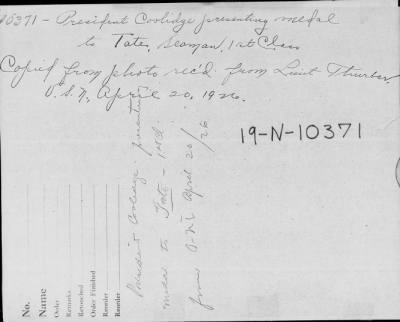 10371 - President Coolidge presenting medal
to Tate, Seaman, 1st Class
Copied from photo rec'd. from Lieut Thurber,
U.S.N., April 20, 1926.
19-N-10371
President Coolidge presenting
medal to Tate - 1st Cl.
from O-N-I April 20/26
No.
Name
Order
Remarks
Retouched
Order Finished
Reorder
Reorder